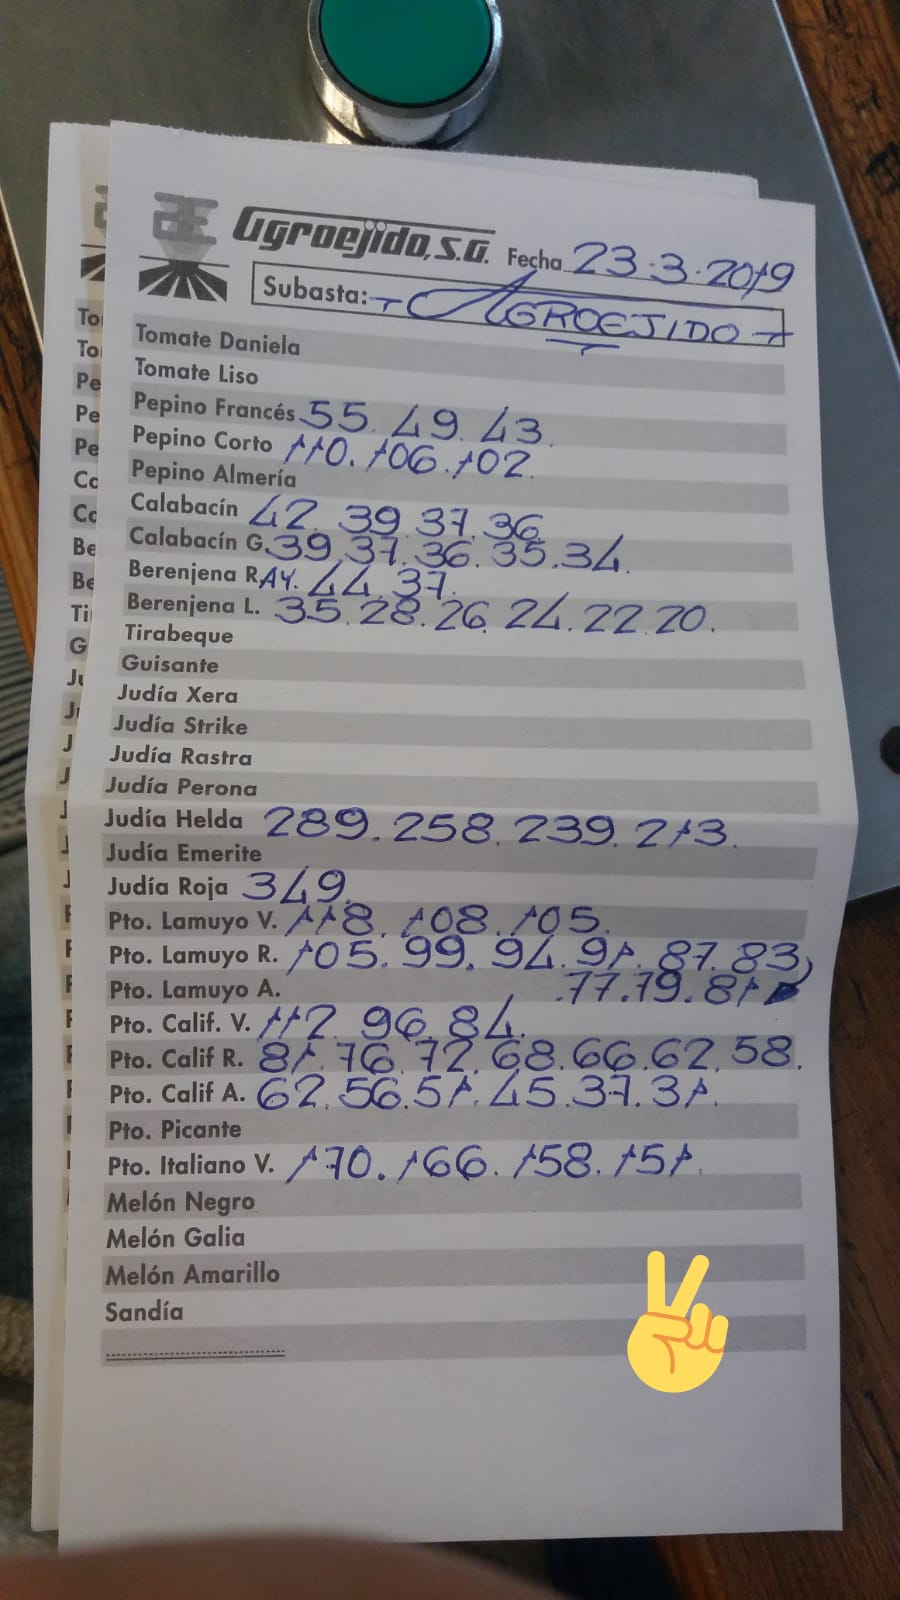 Agroejido, S.G. Fecha 23.3.2019
Subasta: AGROEJIDO
Tomate Daniela
Tomate Liso
Pepino Francés 55. 49. 43.
Pepino Corto 110. 106. 102.
Pepino Almería
Calabacín 42. 39. 37. 36
Calabacín G. 39. 37. 36. 35. 34.
Berenjena R AY. 44. 37.
Berenjena L. 35. 28. 26. 24. 22. 20.
Tirabeque
Guisante
Judía Xera
Judía Strike
Judía Rastra
Judía Perona
Judía Helda 289. 258. 239. 213.
Judía Emerite
Judía Roja 349.
Pto. Lamuyo V. 118. 108. 105.
Pto. Lamuyo R. 105. 99. 94. 91. 87. 83
Pto. Lamuyo A. .77. 79. 81
Pto. Calif. V. 112. 96. 84.
Pto. Calif R. 81. 76. 72. 68. 66. 62. 58.
Pto. Calif A. 62. 56. 51. 45. 37. 31.
Pto. Picante
Pto. Italiano V. 170. 166. 158. 151.
Melón Negro
Melón Galia
Melón Amarillo
Sandía